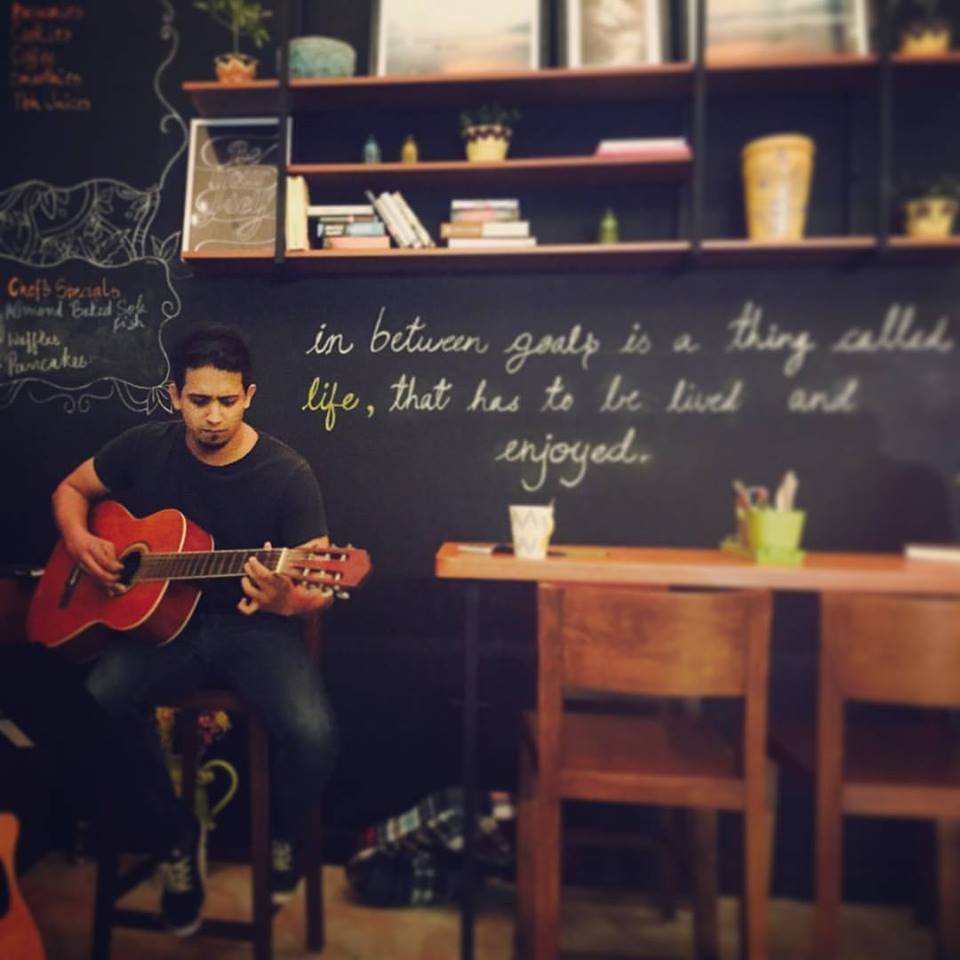 Brownies
Cookies
Coffee
Smoothies
Chef's Specials
Almond Baked Sole
Fish
Waffles
Pancakes
in between goals is a thing called
life, that has to be lived and
enjoyed.